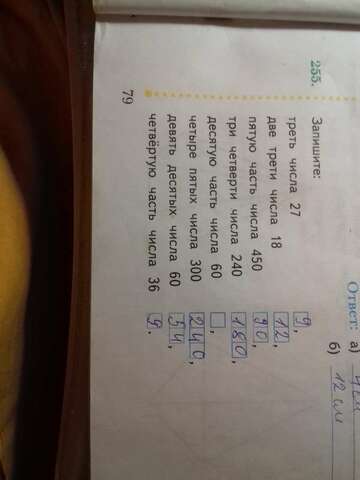 Ответ: а)
б) 12 см
255. Запишите:
треть числа 27 9,
две трети числа 18 12,
пятую часть числа 450 90,
три четверти числа 240 180,
десятую часть числа 60 ,
четыре пятых числа 300 240,
девять десятых числа 60 54,
четвёртую часть числа 36 9.
79